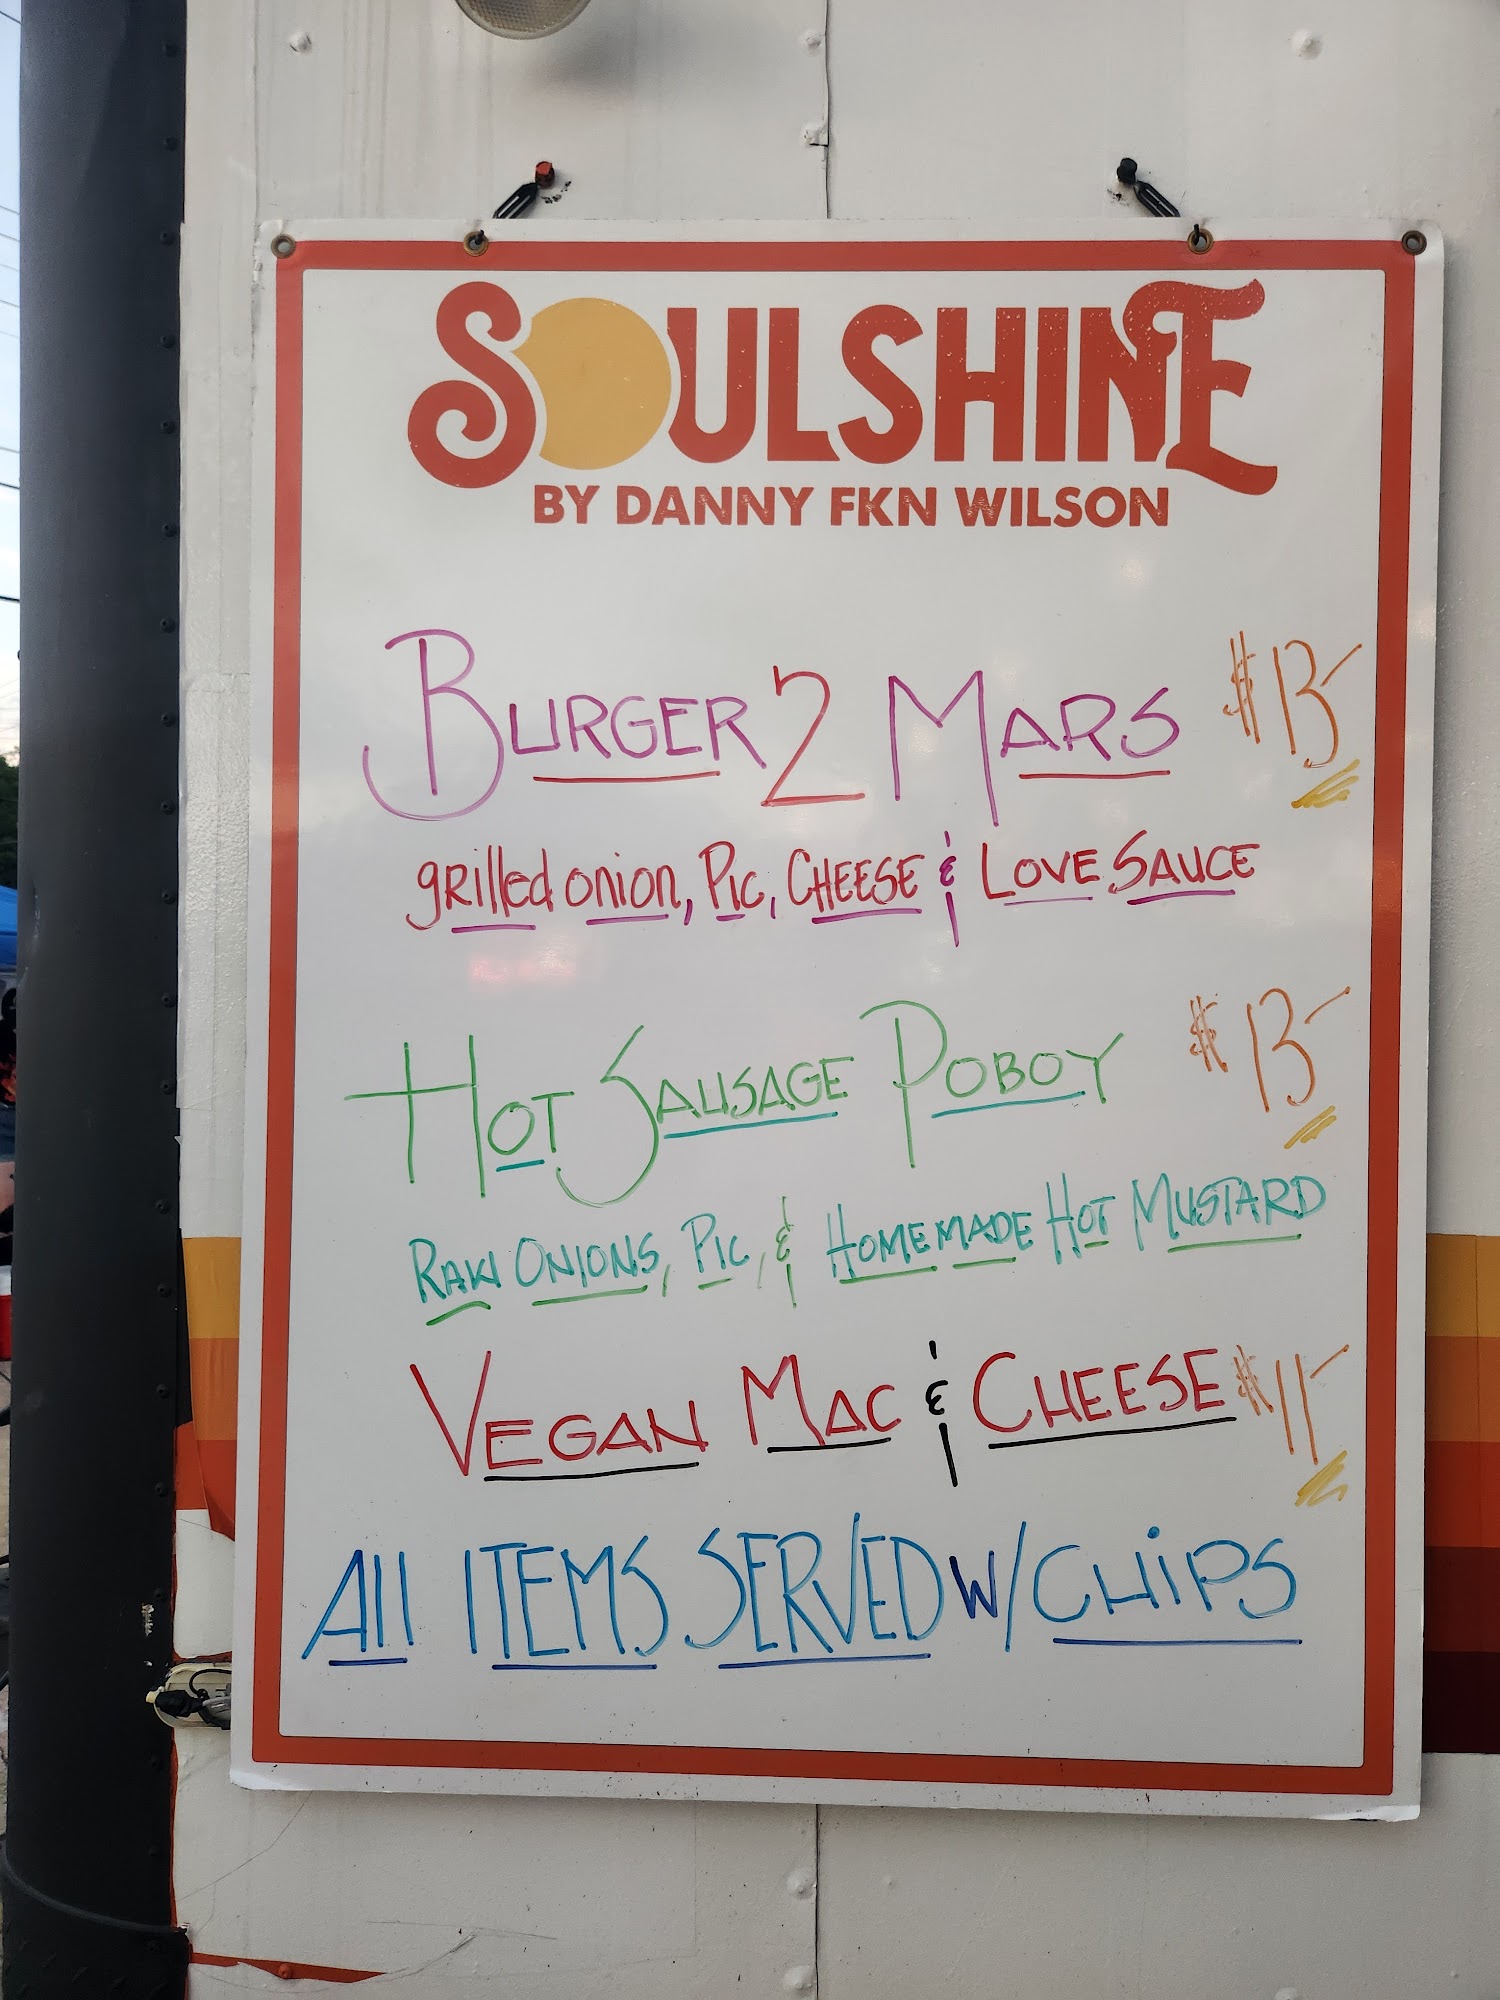 SOULSHINE
BY DANNY FKN WILSON
BURGER 2 MARS $13-
grilled onion, Pic, CHEESE & LOVE SAUCE
HOT SAUSAGE POBOY $13-
RAW ONIONS, PIC, & HOMEMADE HOT MUSTARD
VEGAN MAC & CHEESE $11-
All ITEMS SERVED W/ CHiPS